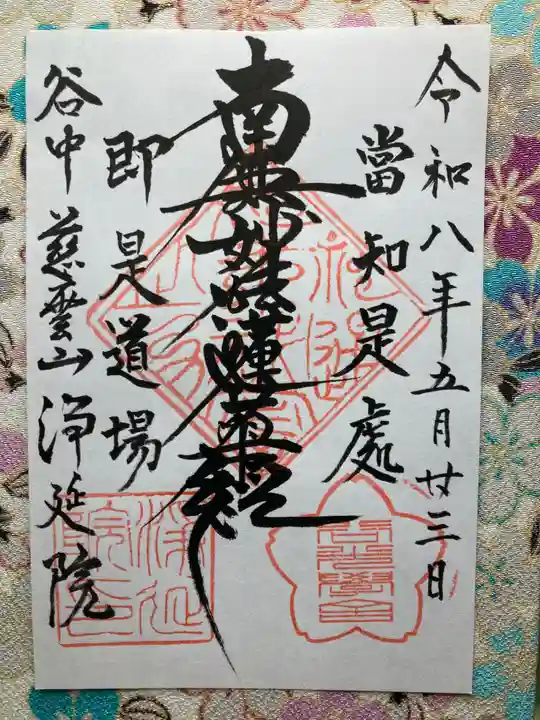 令和八年五月廿三日
當知是處
南無妙法蓮華経
即是道場
谷中慈雲山浄延院